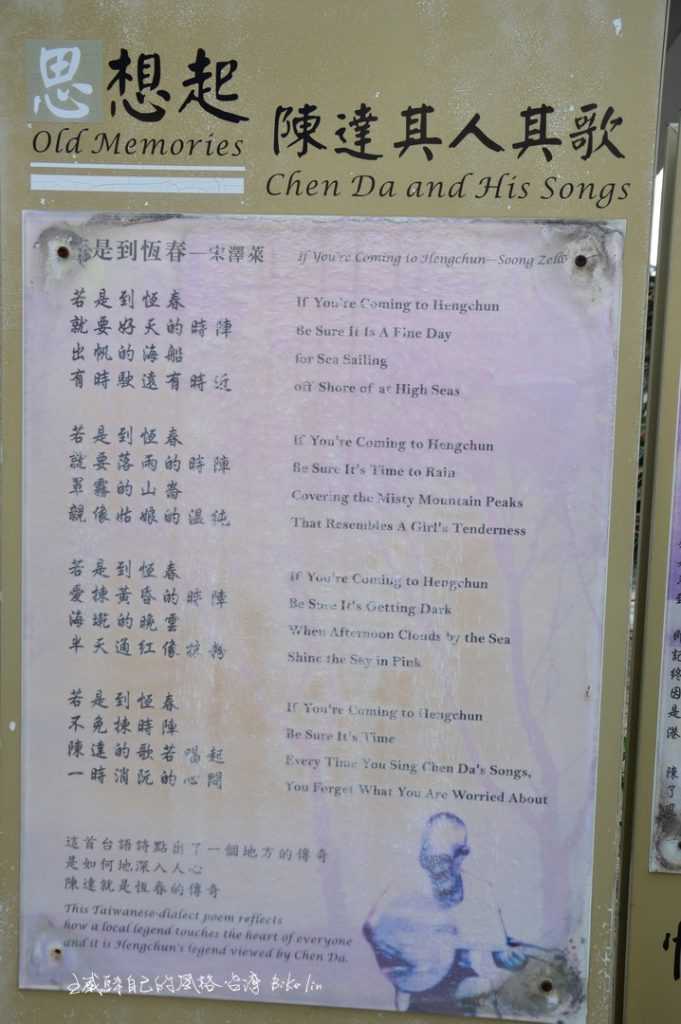 思想起
Old Memories
陳達其人其歌
Chen Da and His Songs
是到恆春—宋澤萊
If You're Coming to Hengchun—Soong Zelai
若是到恆春
就要好天的時陣
出帆的海船
有時駛遠有時近
If You're Coming to Hengchun
Be Sure It Is A Fine Day
for Sea Sailing
off Shore of at High Seas
若是到恆春
就要落雨的時陣
罩霧的山崙
親像姑娘的溫純
If You're Coming to Hengchun
Be Sure It's Time to Rain
Covering the Misty Mountain Peaks
That Resembles A Girl's Tenderness
若是到恆春
愛揀黃昏的時陣
海墘的晚雲
半天通紅像抹粉
If You're Coming to Hengchun
Be Sure It's Getting Dark
When Afternoon Clouds by the Sea
Shine the Sky in Pink
若是到恆春
不免揀時陣
陳達的歌若唱起
一時消阮的心悶
If You're Coming to Hengchun
Be Sure It's Time
Every Time You Sing Chen Da's Songs,
You Forget What You Are Worried About
這首台語詩點出了一個地方的傳奇
是如何地深入人心
陳達就是恆春的傳奇
This Taiwanese-dialect poem reflects
how a local legend touches the heart of everyone
and it is Hengchun's legend viewed by Chen Da.
自己的風格 台灣 Biko lin